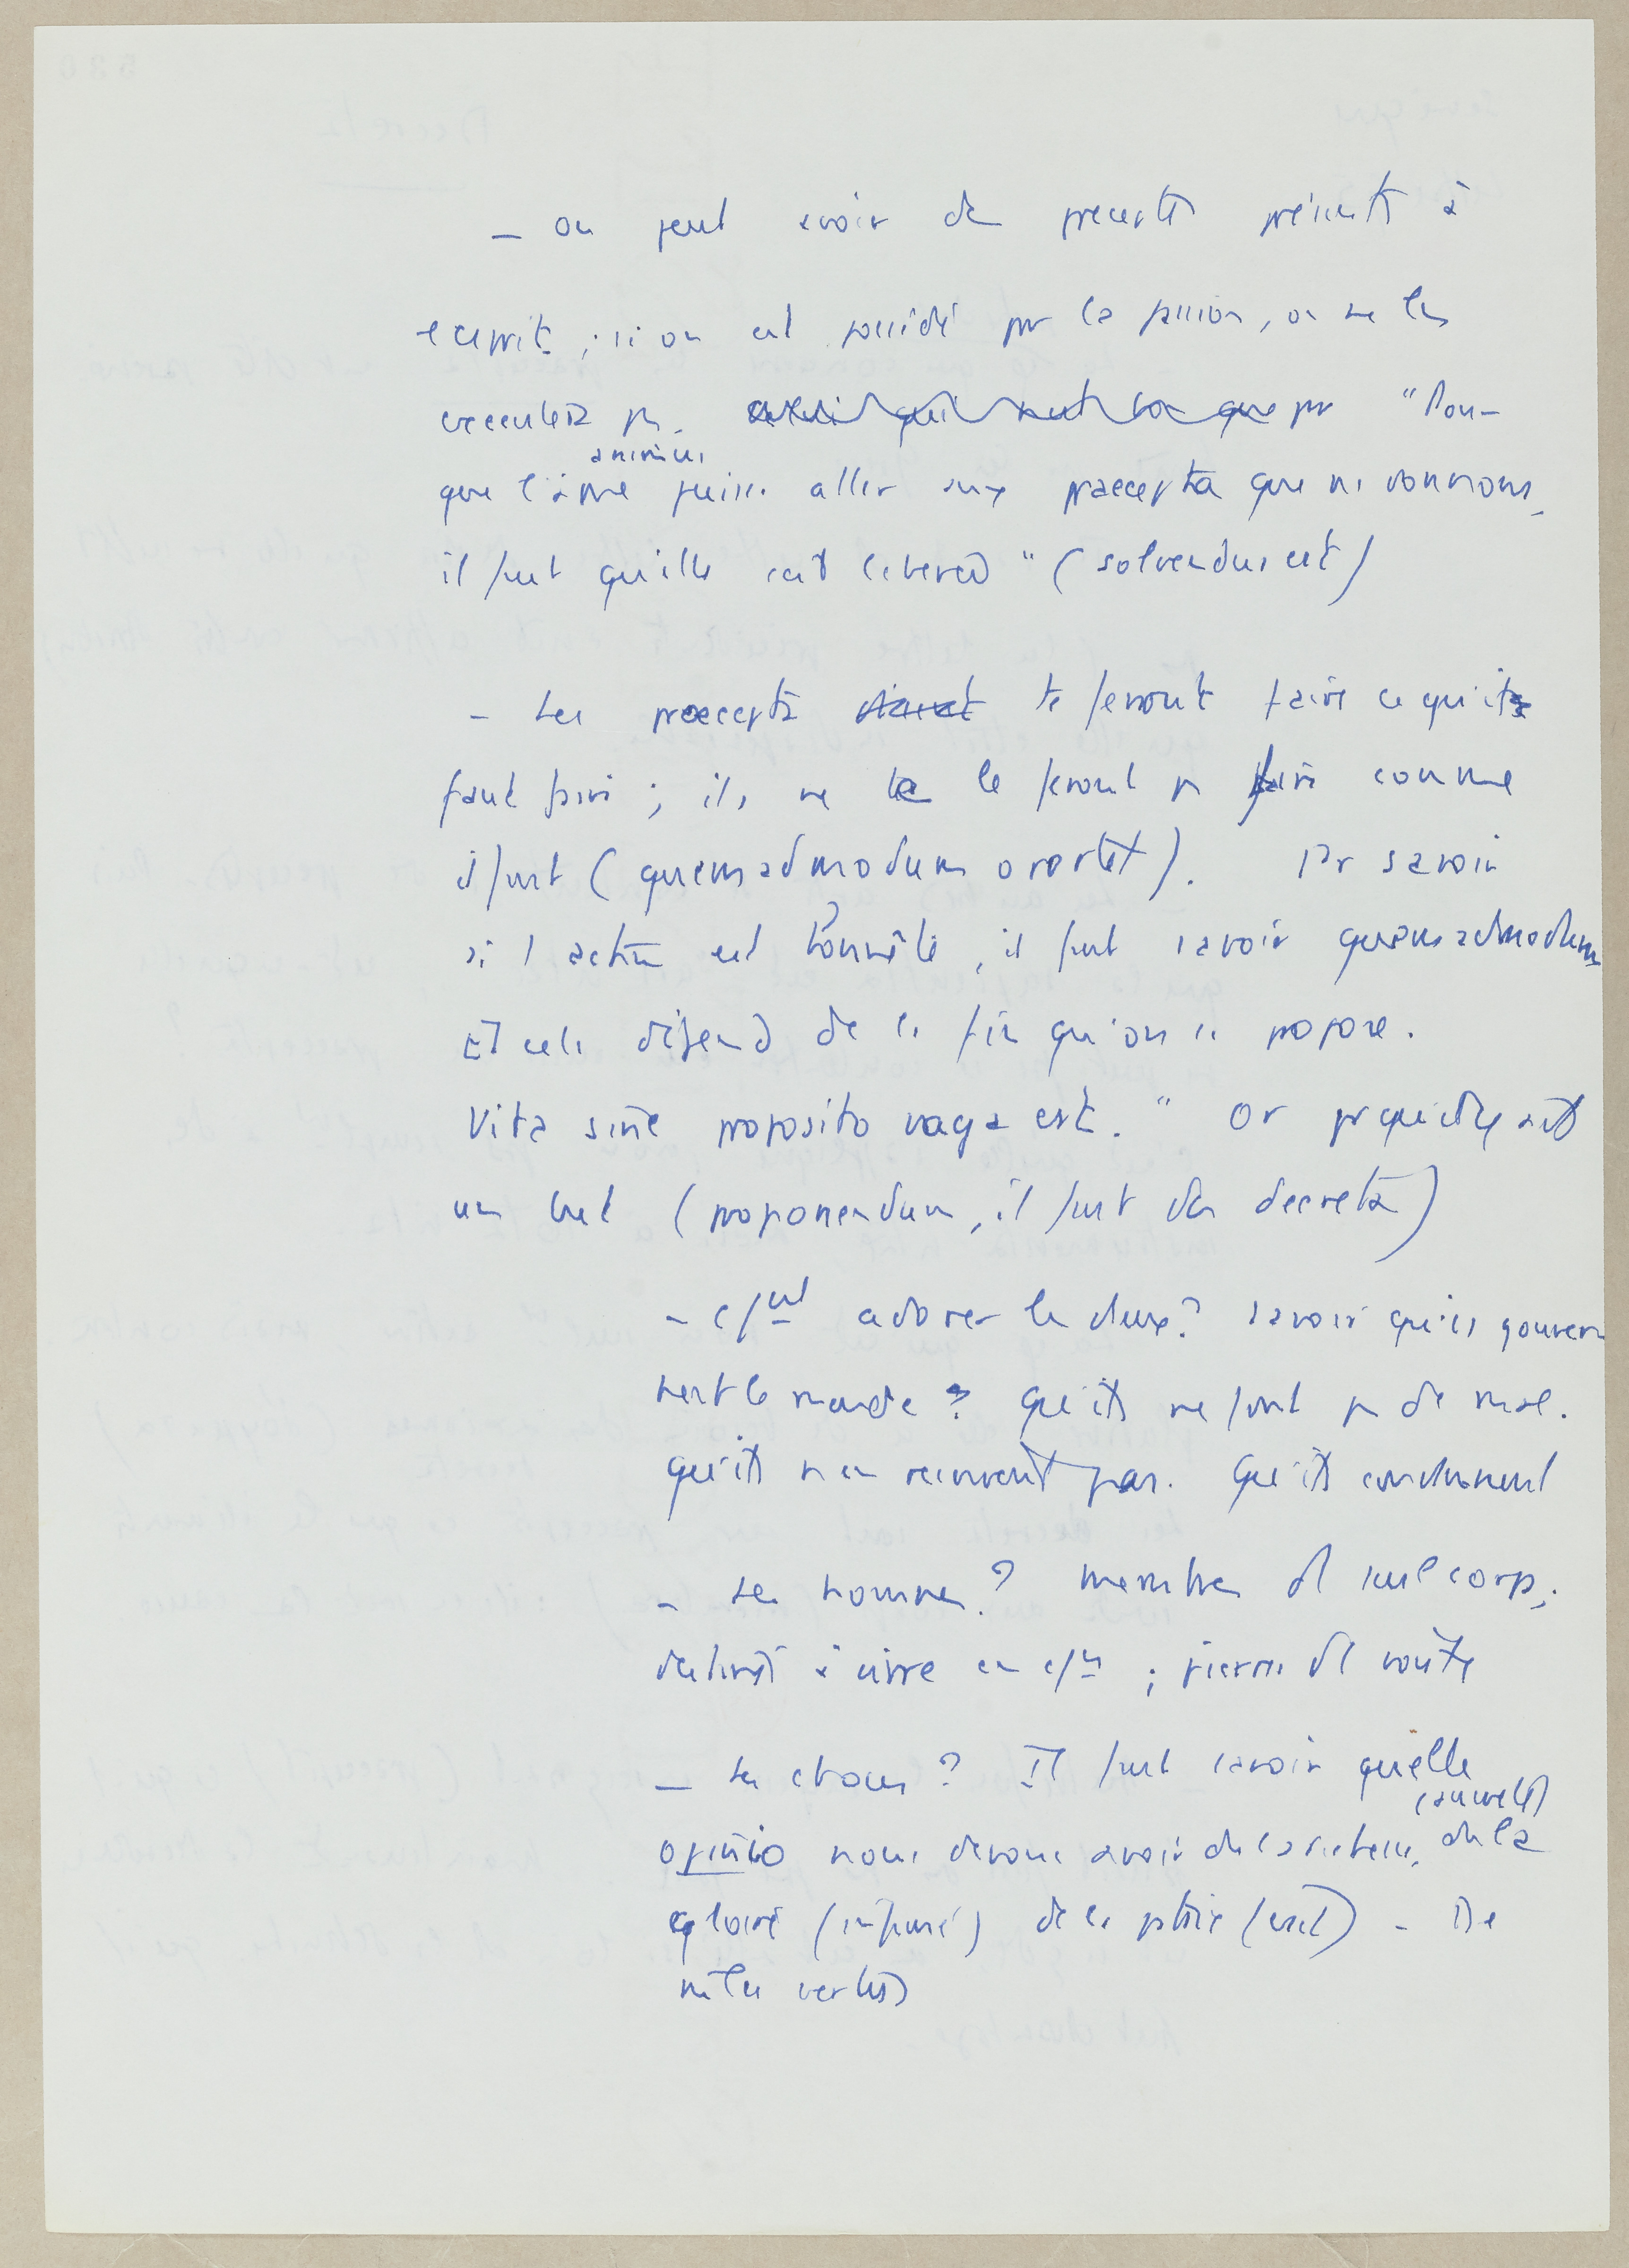 — on peut avoir des preceptes présents à
l'esprit ; si on est possédé par la passion, on ne les
executera pas. pr "Pour
animus
que l'âme puisse aller aux praecepta que ns donnons,
il faut qu'elle soit liberee" (solvendus est)
— Les praecepta te feront faire ce qu'il
faut faire ; ils ne le feront pas faire comme
il faut (quemadmodum oportet). Pr savoir
si l'action est honnête, il faut savoir quemadmodum
Et cela dépend de la fin qu'on se propose.
Vita sine proposito vaga est." Or pr qu'il y ait
un but (proponendum, il faut des decreta)
— cpnt adorer les dieux ? savoir qu'ils gouver-
nent le monde ? Qu'ils ne font pas de mal.
Qu'ils n'en reçoivent pas. Qu'ils condamnent
— Les hommes ? membres d'1 seul corps ;
destinés à vivre en ; pierres d'1 voûte
— Les choses ? Il faut savoir quelle
opinio nous devons avoir de la richesse, de la
gloire (infamie) de la patrie (exil) - De
mêm les vertus